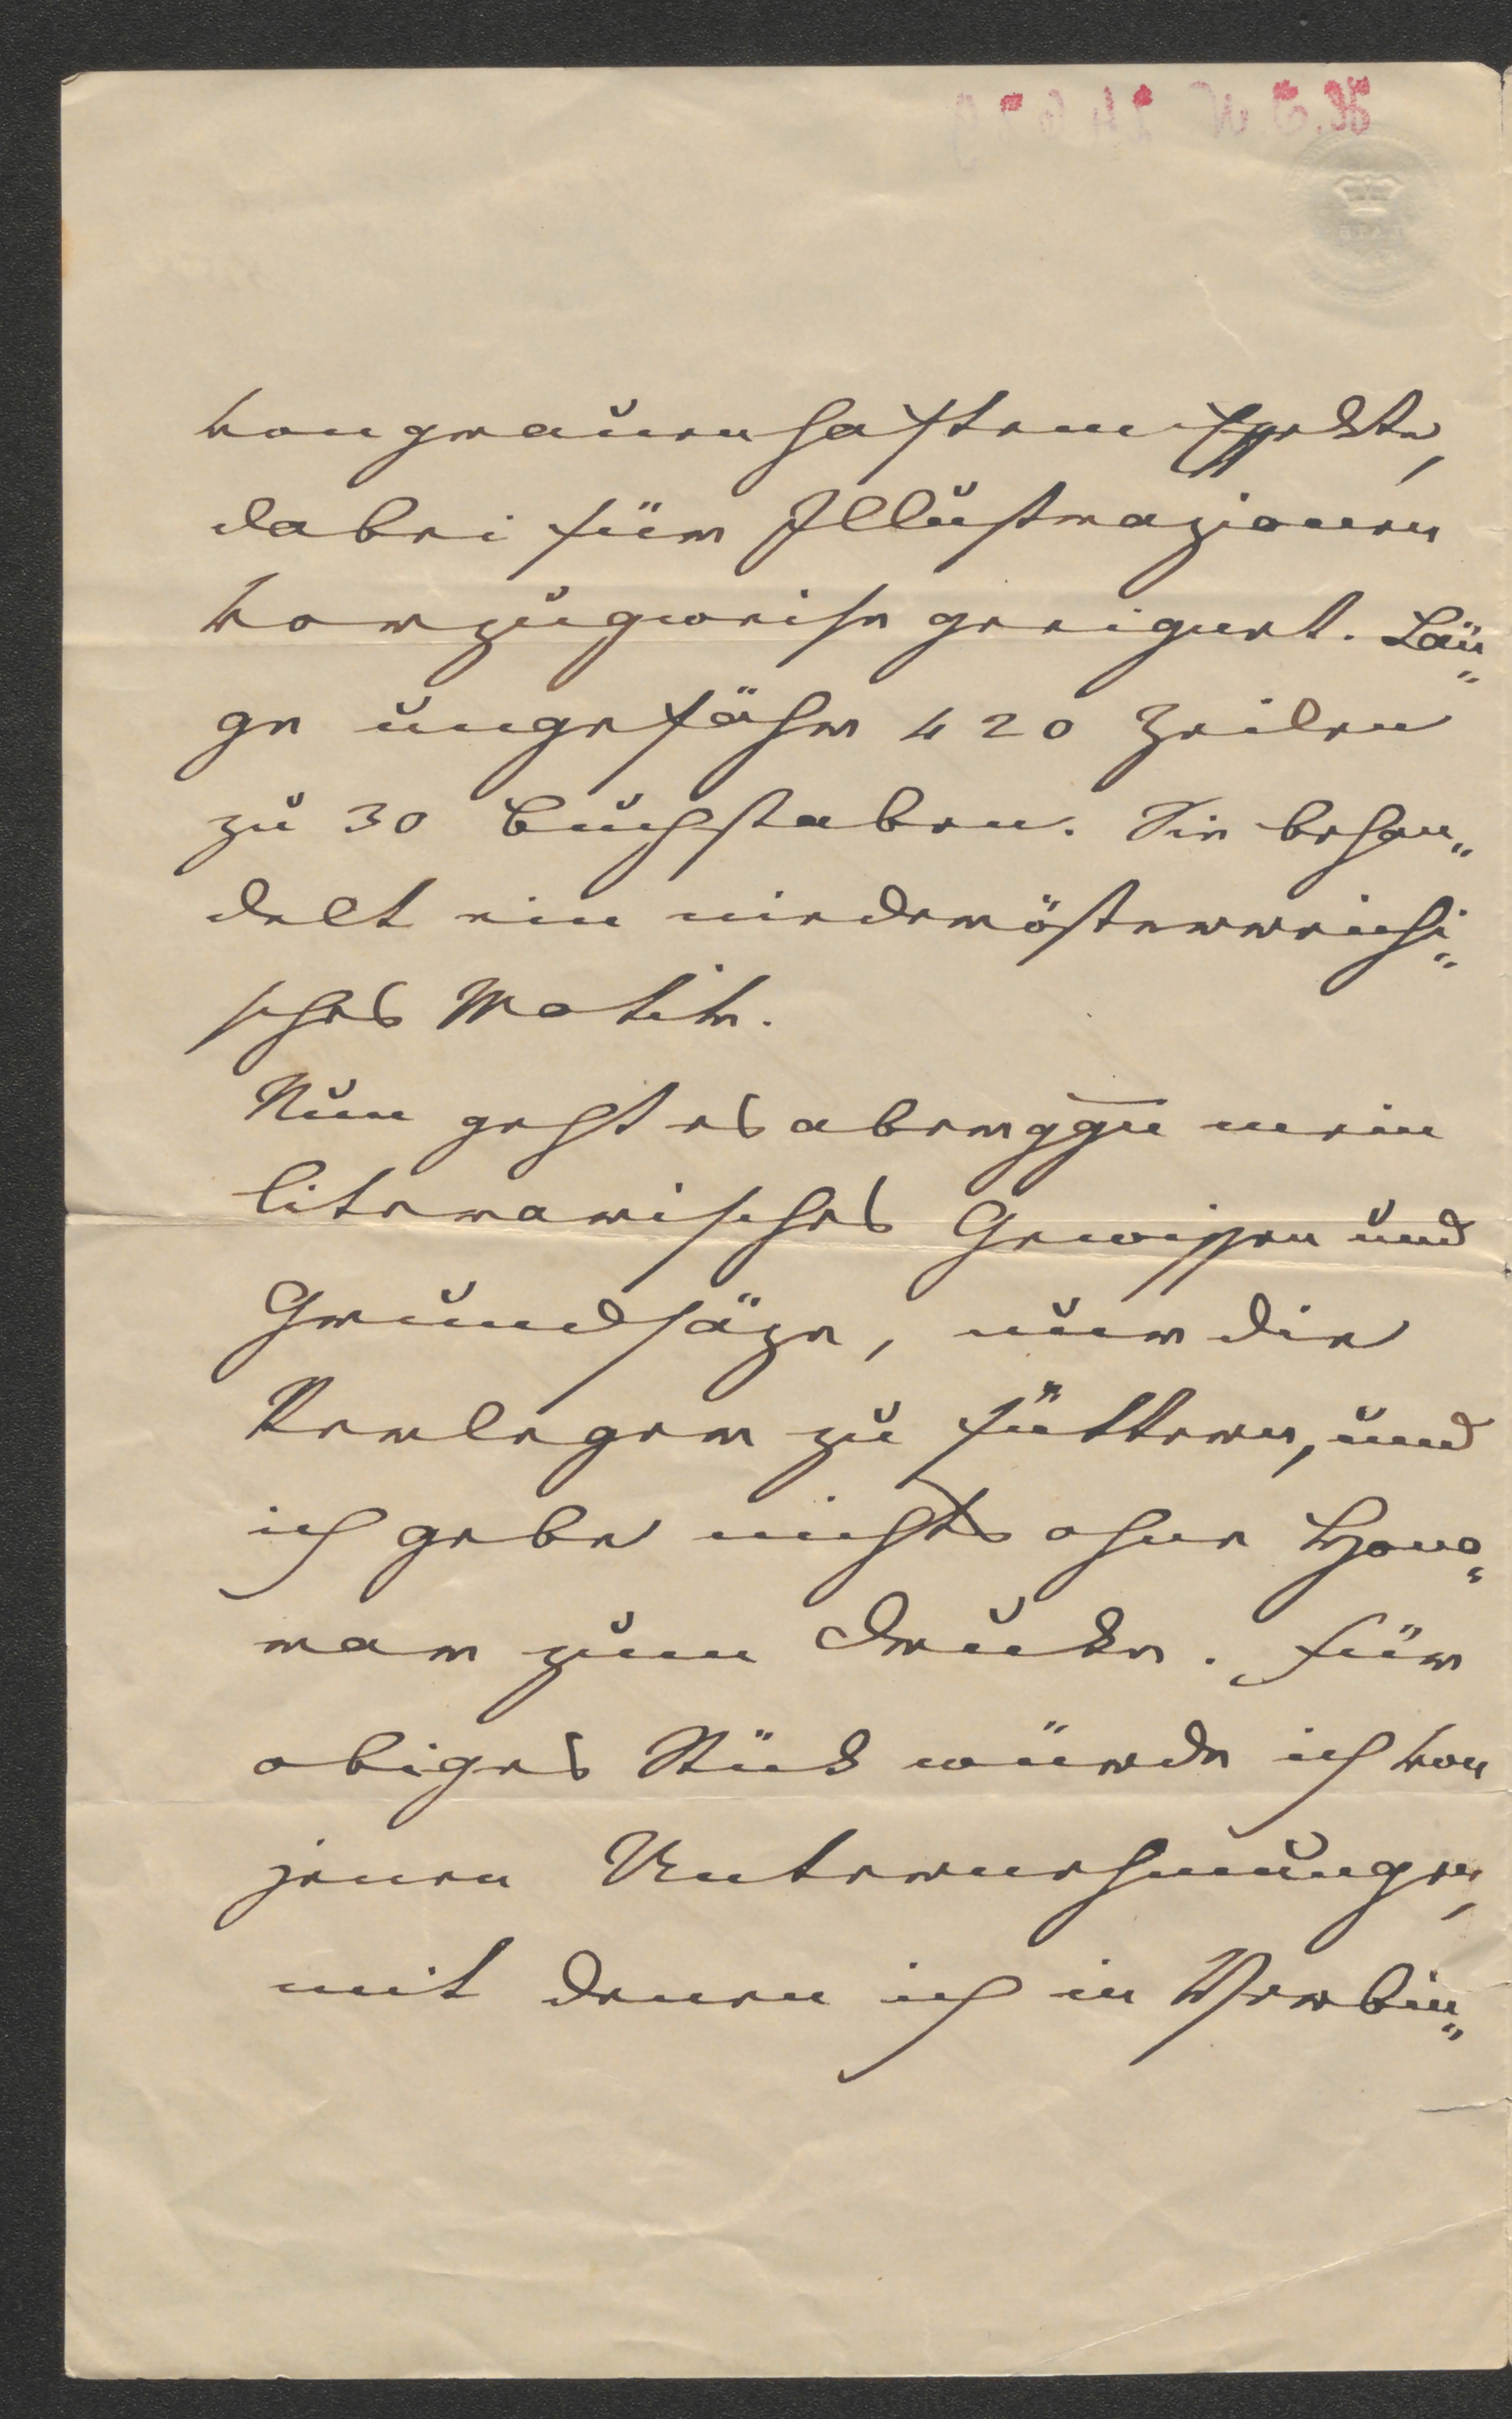 von grauenhaftem Effekte,
dabei für Illustrazionen
vorzugweise geeignet. Län„
ge ungefähr 420 Zeilen
zu 30 Buchstaben. Sie behan„
delt ein niederösterreichi„
sches Motiv.
Nun geht es aber ggn mein
literarisches Gewissen und
Grundsäze, nur die
Verleger zu füttern, und
ich gebe nichts ohne Hono„
rar zum Drucke. Für
obiges Stück würde ich von
jenen Unternehmungen,
mit denen ich in Verbin„